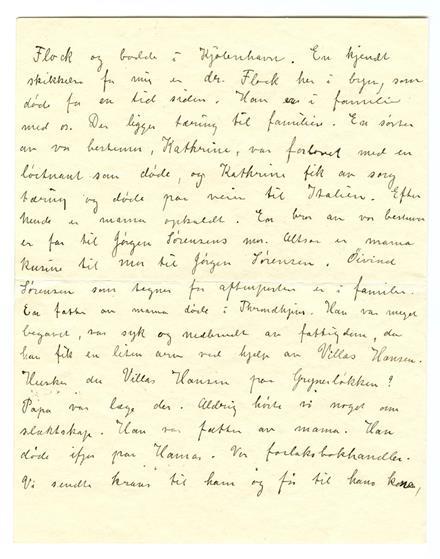 Flock og bodde i Kjøbenhavn. En kjendt
skikkelse for mig er dr. Flock her i byen, som
døde for en tid siden. Han er i familie
med os. Der ligger tæring til familien. En søster
av vor bestemor, Kathrine, var forlovet med en
løitnant som døde, og Kathrine fik av sorg
tæring og døde paa veien til Italien. Efter
hende er mama opkaldt. En bror av vor bestemor
er far til Jørgen Sørensens mor. Altsaa er mama
kusine til mor til Jørgen Sørensen. Øivind
Sørensen som tegner for aftenposten er i familie.
En fætter av mama døde i Throndhjem. Han var meget
begavet, var syk og nedbrudt av fattigdom, da
han fik en liten arv ved hjelp av Villas Hansen.
Husker du Villas Hansen paa Grynerløkken?
Papa var læge der. Aldrig hørte vi noget om
slæktskap. Han var fætter av mama. Han
døde ifjor paa Hamar. Var forlaksbokhandler.
Vi sendte krans til ham og fik til hans kone,